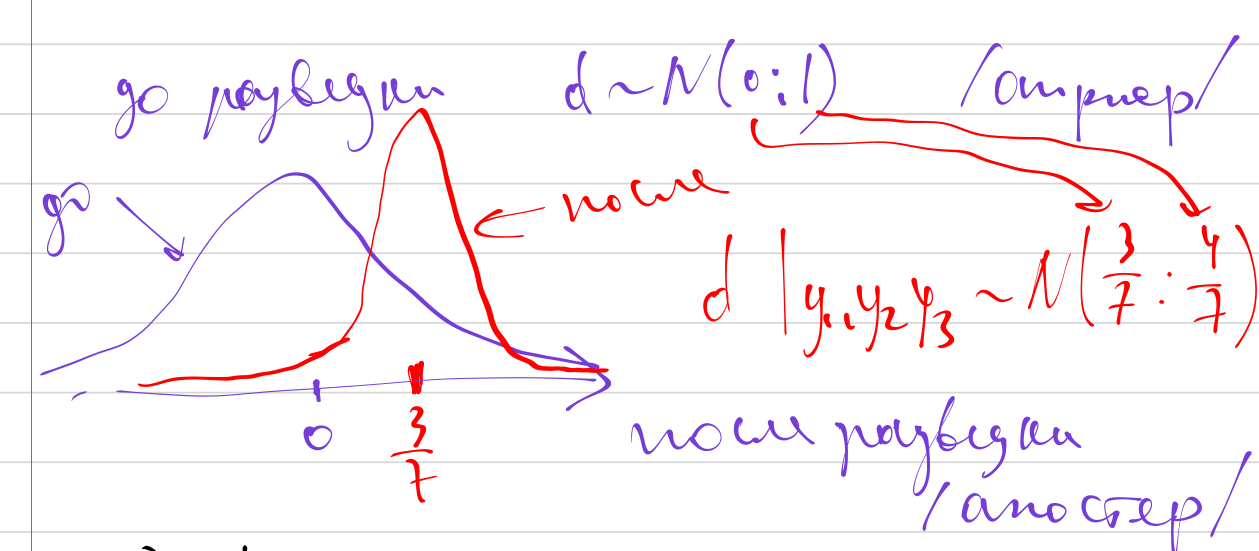 до разведки d ~ N(0;1) /априор/
до
после
d | y₁, y₂ y₃ ~ N(3/7 : 4/7)
0
3/7
после разведки
/апостер/